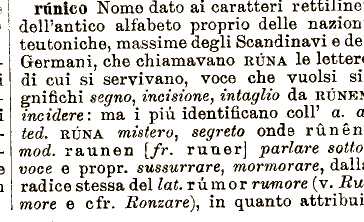 rúnico Nome dato ai caratteri rettiline
dell'antico alfabeto proprio delle nazion
teutoniche, massime degli Scandinavi e de
Germani, che chiamavano RÚNA le lettere
di cui si servivano, voce che vuolsi si
gnifichi segno, incisione, intaglio da RÚNEN
incidere: ma i più identificano coll' a. a
ted. RÚNA mistero, segreto onde rûnên
mod. raunen [fr. runer] parlare sotto
voce e propr. sussurrare, mormorare, dalla
radice stessa del lat. rúmor rumore (v. Ru
more e cfr. Ronzare), in quanto attribui